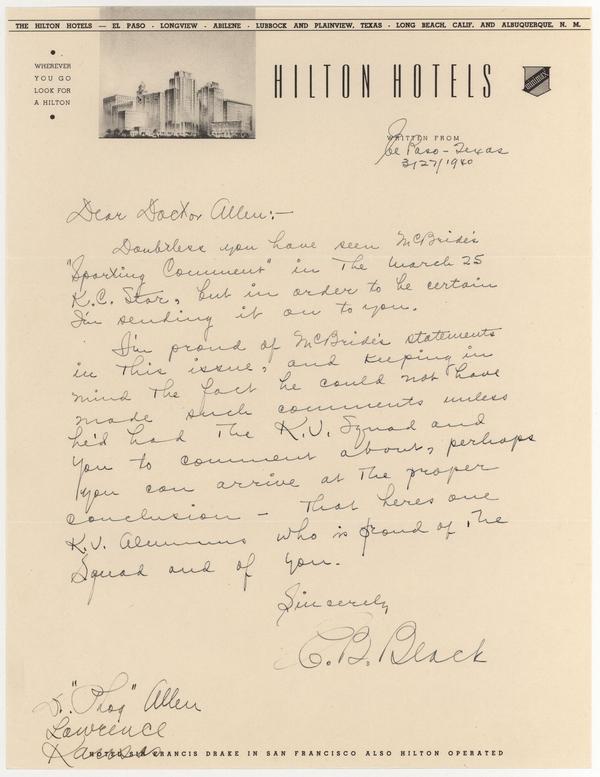 THE HILTON HOTELS — EL PASO - LONGVIEW - ABILENE - LUBBOCK AND PLAINVIEW, TEXAS - LONG BEACH, CALIF. AND ALBUQUERQUE, N. M.
WHEREVER
YOU GO
LOOK FOR
A HILTON
HILTON HOTELS
minimax
WRITTEN FROM
El Paso - Texas
3/27/1940
Dear Doctor Allen:-
Doubtless you have seen McBride's
"Sporting Comment" in the March 25
K.C. Star, but in order to be certain
I'm sending it on to you.
I'm proud of McBride's statements
in this issue, and keeping in
mind the fact he could not have
made such comments unless
he'd had the K.U. Squad and
you to comment about, perhaps
you can arrive at the proper
conclusion - that heres one
K.U. Alumnus who is proud of the
Squad and of you.
Sincerely
C.B. Black
Dr. "Phog" Allen
Lawrence
Kansas
HOTEL SIR FRANCIS DRAKE IN SAN FRANCISCO ALSO HILTON OPERATED